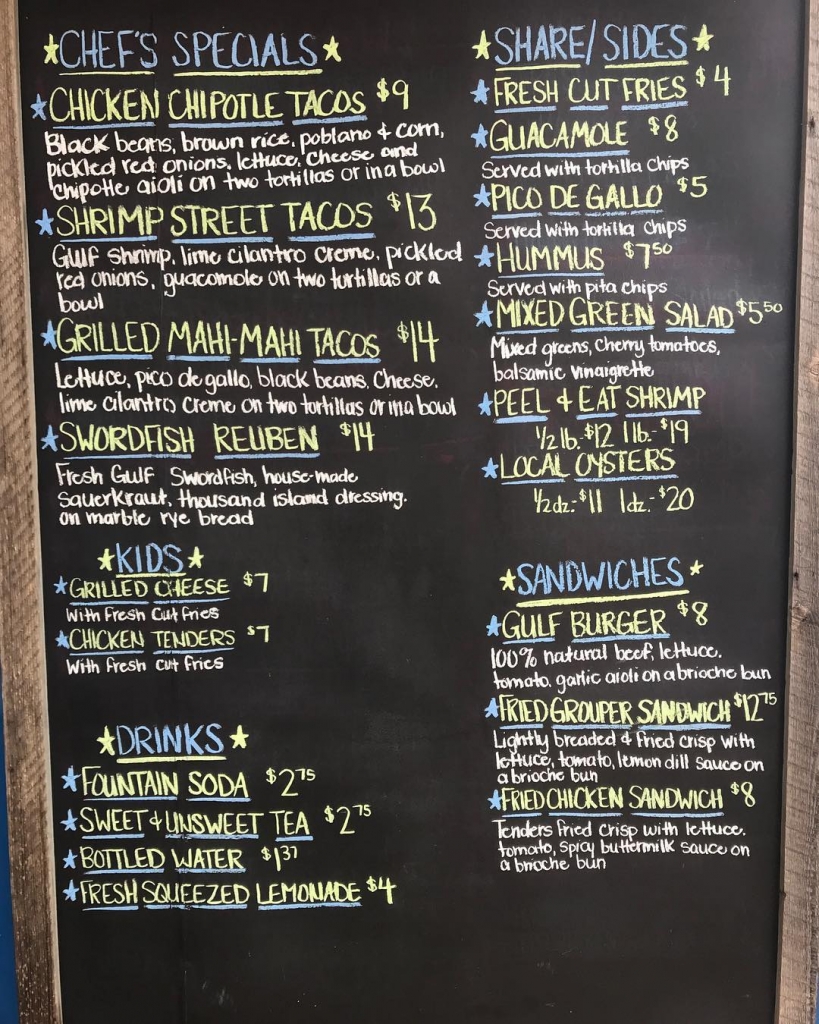 CHEF'S SPECIALS
CHICKEN CHIPOTLE TACOS $9
Black beans, brown rice, poblano & corn,
pickled red onions, lettuce, cheese and
chipotle aioli on two tortillas or in a bowl
SHRIMP STREET TACOS $13
Gulf shrimp, lime cilantro creme, pickled
red onions, guacomole on two tortillas or a
bowl
GRILLED MAHI-MAHI TACOS $14
Lettuce, pico de gallo, black beans, cheese,
lime cilantro creme on two tortillas or in a bowl
SWORDFISH REUBEN $14
Fresh Gulf Swordfish, house-made
Sauerkraut, thousand island dressing.
on marble rye bread
KIDS
GRILLED CHEESE $7
With Fresh Cut fries
CHICKEN TENDERS $7
With fresh cut fries
DRINKS
FOUNTAIN SODA $2.75
SWEET & UNSWEET TEA $2.75
BOTTLED WATER $1.37
FRESH SQUEEZED LEMONADE $4
SHARE/SIDES
FRESH CUT FRIES $4
GUACAMOLE $8
Served with tortilla chips
PICO DE GALLO $5
Served with tortilla chips
HUMMUS $7.50
Served with pita chips
MIXED GREEN SALAD $5.50
Mixed greens, cherry tomatoes,
balsamic vinaigrette
PEEL & EAT SHRIMP
1/2 lb.-$12 1 lb.-$19
LOCAL OYSTERS
1/2 dz.-$11 1dz.-$20
SANDWICHES
GULF BURGER $8
100% natural beef, lettuce,
tomato, garlic aioli on a brioche bun
FRIED GROUPER SANDWICH $12.75
Lightly breaded & fried crisp with
lettuce, tomato, lemon dill sauce on
a brioche bun
FRIED CHICKEN SANDWICH $8
Tenders fried crisp with lettuce,
tomato, spicy buttermilk sauce on
a brioche bun